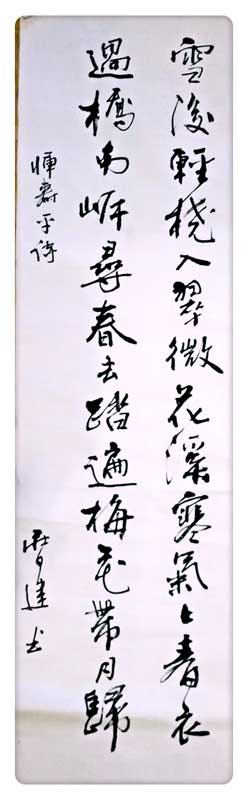 雪後輕橈入翠微花溪寒氣上春衣
過橋南岸尋春去踏遍梅花帶月歸
惲壽平詩
书